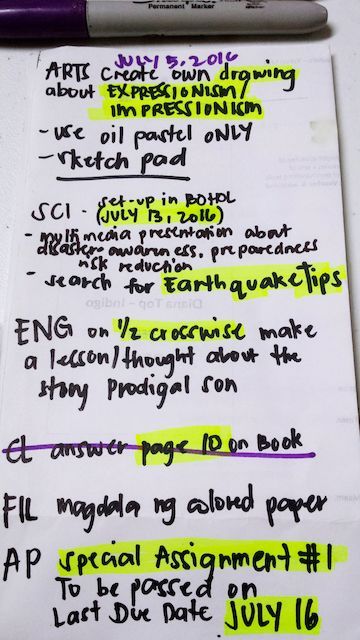 Permanent Marker
JULY 5, 2016
ARTS create own drawing
about EXPRESSIONISM/
IMPRESSIONISM
- use oil pastel ONLY
- sketch pad
SCI - set-up in BOHOL
(JULY 13, 2016)
- multimedia presentation about
disaster awareness, preparedness
risk reduction
- search for Earthquake Tips
ENG on 1/2 crosswise make
a lesson/thought about the
story prodigal son
CL answer page 10 on Book
FIL magdala ng colored paper
AP special Assignment #1
To be passed on
Last Due Date JULY 16